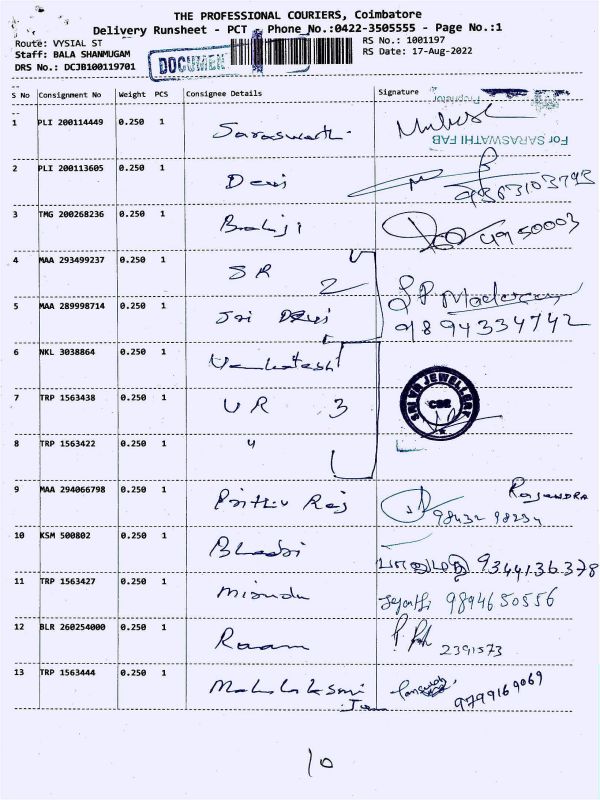 THE PROFESSIONAL COURIERS, Coimbatore
Delivery Runsheet - PCT - Phone No.:0422-3505555 - Page No.:1
Route: VYSIAL ST RS No.: 1001197
Staff: BALA SHANMUGAM RS Date: 17-Aug-2022
DRS No.: DCJB100119701 DOCUMEN
S No Consignment No Weight PCS Consignee Details Signature
Proprietor
1 PLI 200114449 0.250 1 Saraswathi
For SARASWATHI FAB
2 PLI 200113605 0.250 1 Devi
3 TMG 200268236 0.250 1 Balaji 4950003
4 MAA 293499237 0.250 1 SR 2
5 MAA 289998714 0.250 1 Sri Devi 9894334742
6 NKL 3038864 0.250 1 Venkatesh
7 TRP 1563438 0.250 1 UR 3 SRI VR JEWELLERY CBE
8 TRP 1563422 0.250 1 "
9 MAA 294066798 0.250 1 Prithiv Raj Rajendra
98432 98234
10 KSM 500802 0.250 1 9344136378
11 TRP 1563427 0.250 1 Jeyanthi 9894650556
12 BLR 260254000 0.250 1 Raam 2391573
13 TRP 1563444 0.250 1 Mahalaksmi 9799169069
10